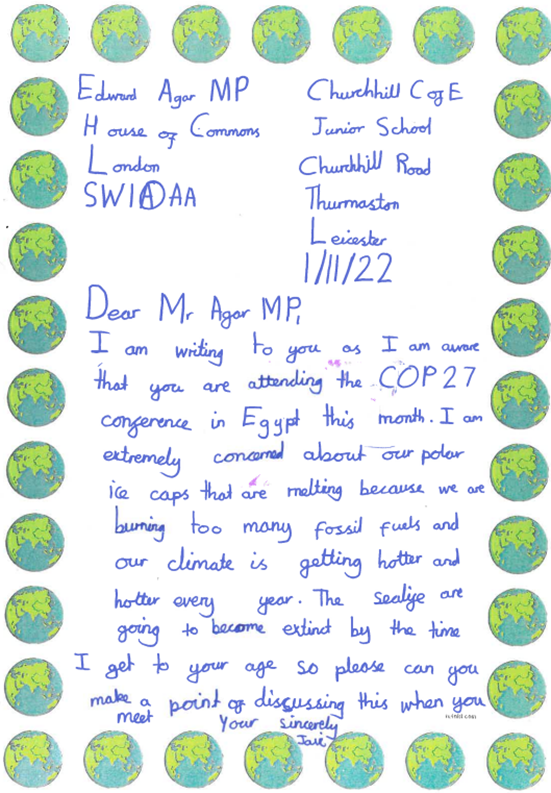 Edward Agar MP
House of Commons
London
SW1A 0AA
Churchhill C of E
Junior School
Churchhill Road
Thurmaston
Leicester
1/11/22
Dear Mr Agar MP,
I am writing to you as I am aware
that you are attending the COP27
conference in Egypt this month. I am
extremely concerned about our polar
ice caps that are melting because we are
burning too many fossil fuels and
our climate is getting hotter and
hotter every year. The sealife are
going to become extinct by the time
I get to your age so please can you
make a point of discussing this when you
meet
Your Sincerely